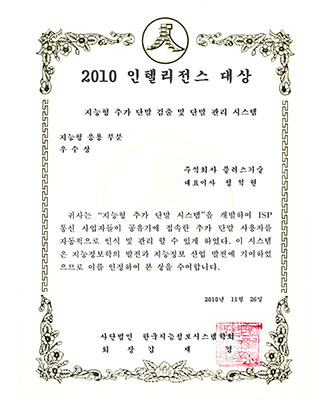 2010 인텔리전스 대상
지능형 추가 단말 검출 및 단말 관리 시스템
지능형 응용 부문
우수상
주식회사 플러스기술
대표이사 정석현
귀사는 "지능형 추가 단말 시스템"을 개발하여 ISP
통신 사업자들이 공유기에 접속한 추가 단말 사용자를
자동적으로 인식 및 관리 할 수 있게 하였다. 이 시스템
은 지능정보학의 발전과 지능정보 산업 발전에 기여하였
으므로 이를 인정하여 본 상을 수여합니다.
2010년 11월 26일
사단법인 한국지능정보시스템학회
회장 김재경